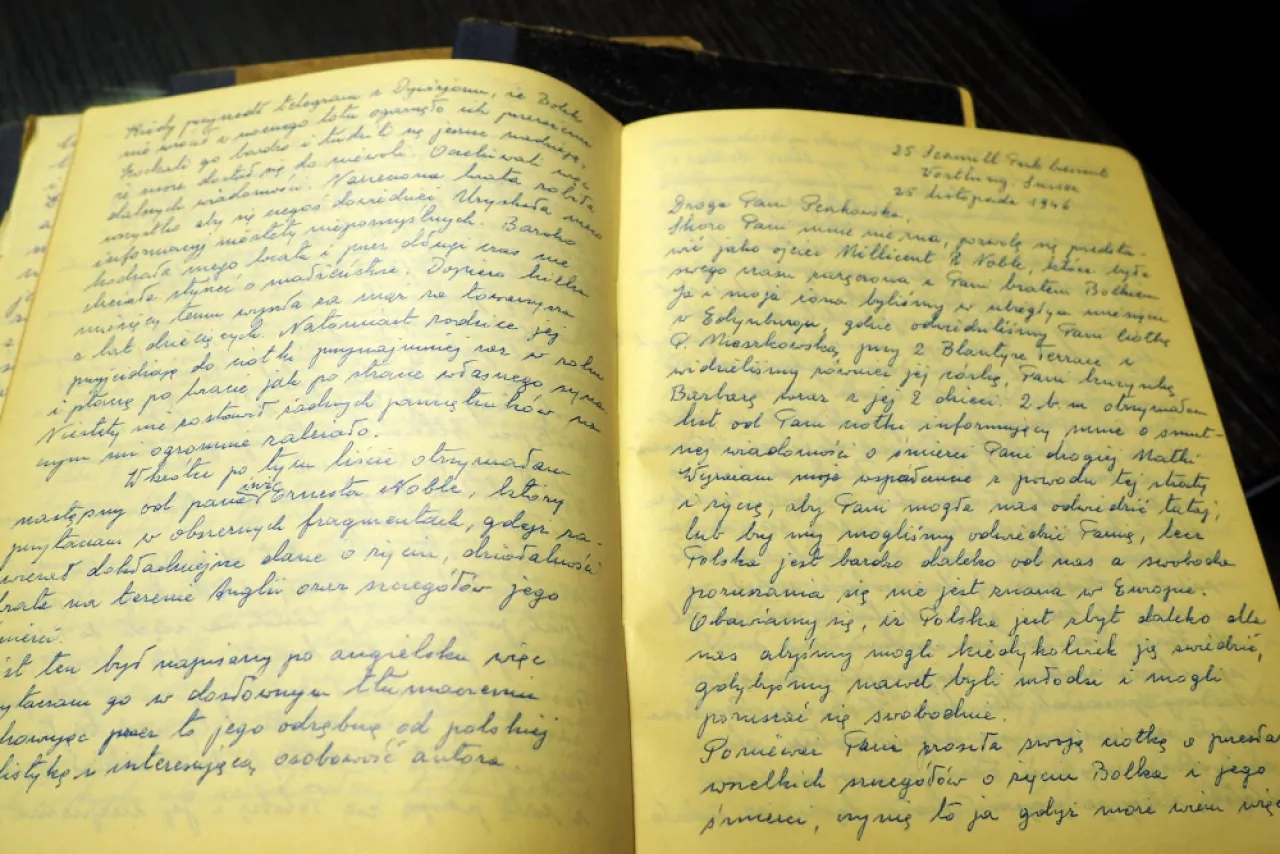 Kiedy przyszedł telegram z Dywizjonu, że Bolek
nie wrócił z nocnego lotu ogarnęło ich przerażenie
Kochali go bardzo i łudzili się jeszcze nadzieją,
że może dostał się do niewoli. Oczekiwali więc
dalszych wiadomości. Narzeczona brata robiła
wszystko aby się czegoś dowiedzieć. Uzyskała
informacje niestety niepomyślnych. Bardzo
kochała mego brata i przez długi czas nie
chciała słyszeć o małżeństwie. Dopiero kilka
miesięcy temu wyszła za mąż za towarzysza
z lat dziecięcych. Natomiast rodzice jej
przyjeżdżają do ciotki przynajmniej raz w roku
i płaczą po bracie jak po stracie własnego syna
Niestety nie zostawił żadnych pamiętników na
czym mi ogromnie zależało.
Wkrótce po tym liście otrzymałam
następny od pana inż Ernesta Noble, który
przytaczam w obszernych fragmentach, gdyż za-
wierał dokładniejsze dane o życiu, działalności
brata na terenie Anglii oraz szczegółów jego
śmierci.
List ten był napisany po angielsku więc
przytaczam go w dosłownym tłumaczeniu
zachowując przez to jego odrębną od polskiej
stylistykę i interesującą osobowość autora
25 Park Crescent
Worthing. Sussex
25 listopada 1946
Droga Pani
Skoro Pani mnie nie zna, pozwolę się przedsta-
wić jako ojciec Millicent R Noble, która była
swego czasu zaręczona z Pani bratem Bolkiem
Ja i moja żona byliśmy w ubiegłym miesiącu
w Edynburgu, gdzie odwiedziliśmy Pani ciotkę
P. Mieszkowską, przy 2 Blantyre Terrace i
widzieliśmy również jej córkę, Pani kuzynkę
Barbarę wraz z jej 2 dzieci. 2 b.m otrzymałem
list od Pani ciotki informujący mnie o smut-
nej wiadomości o śmierci Pani drogiej Matki
Wyrażam moje współczucie z powodu tej straty
i życzę, aby Pani mogła nas odwiedzić tutaj,
lub by my mogliśmy odwiedzić Panią, lecz
Polska jest bardzo daleko od nas a swoboda
poruszania się nie jest znana w Europie.
Obawiamy się, iż Polska jest zbyt daleko dla
nas abyśmy mogli kiedykolwiek ją zwiedzić,
gdybyśmy nawet byli młodzi i mogli
poruszać się swobodnie.
Ponieważ Pani prosiła swoją ciotkę o przesła
wszelkich szczegółów o życiu Bolka i jego
śmierci, czynię to ja gdyż może wiem więc